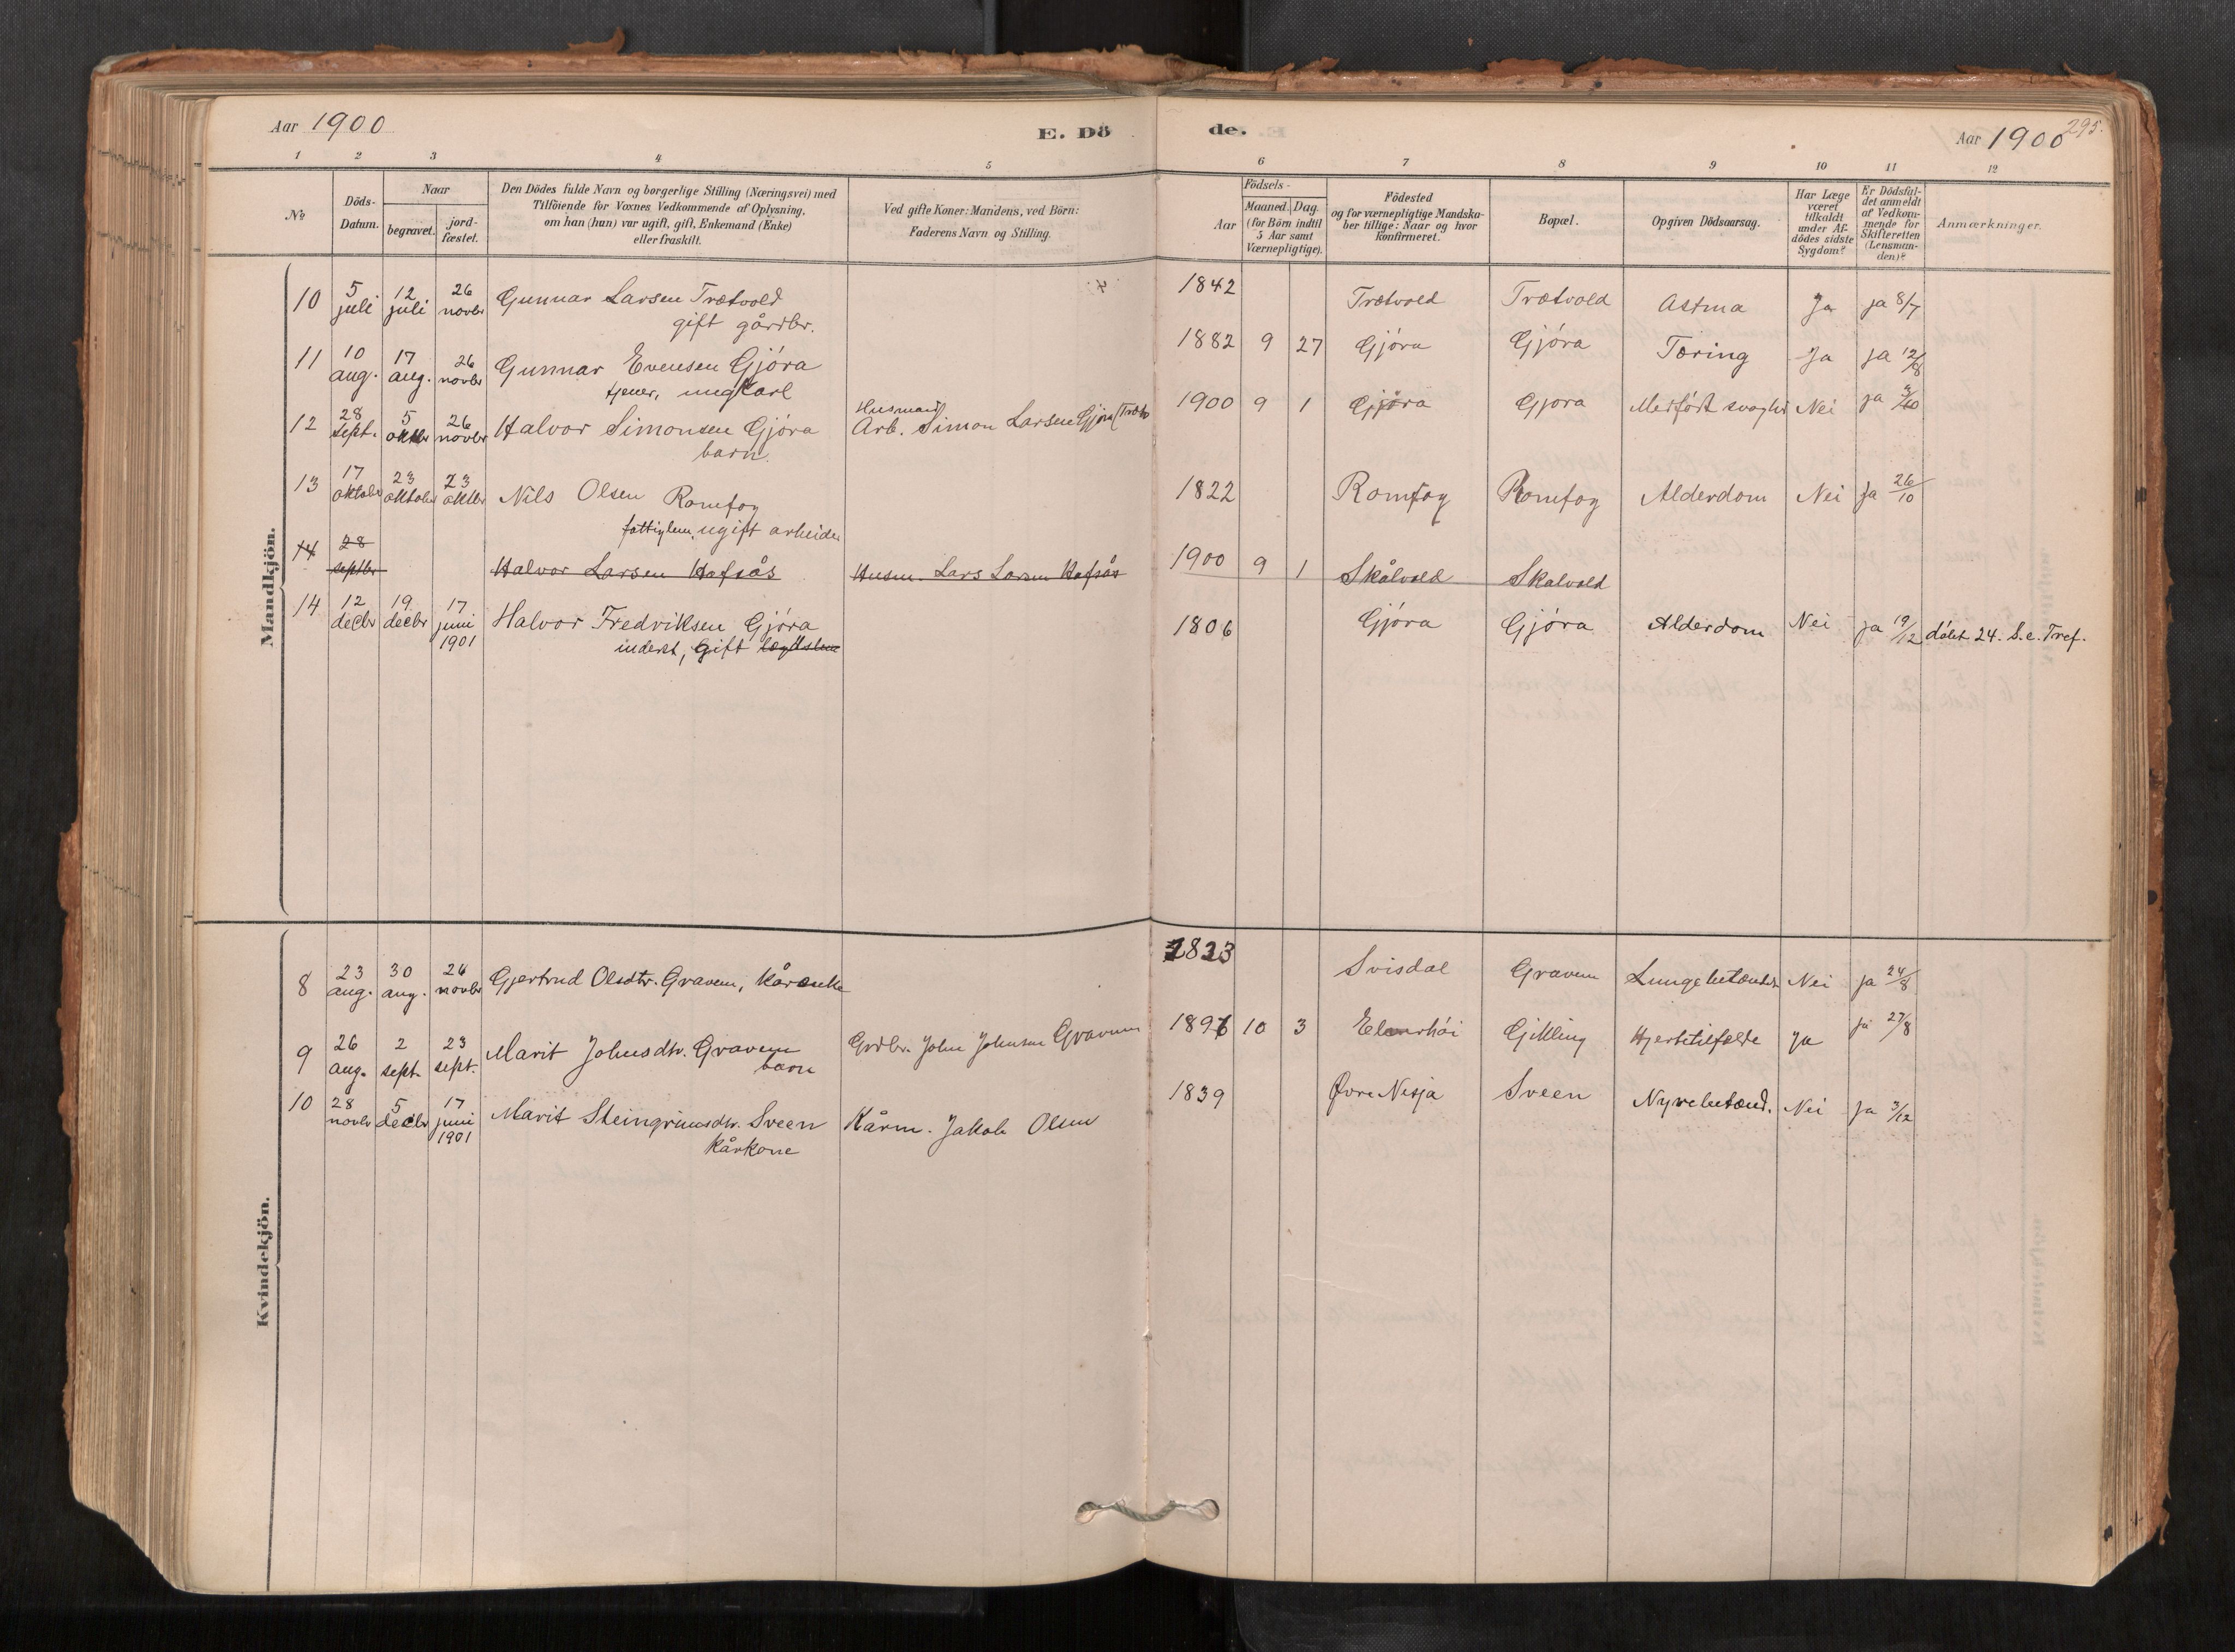 Aar 1900
E. Dö
de.
Aar 1900
295.
1 2 3 4 5 6 7 8 9 10 11 12
№
Döds-
Datum.
Naar
begravet.
jord-
fæstet.
Den Dödes fulde Navn og borgerlige Stilling (Næringsvei) med
Tilföiende for Voxnes Vedkommende af Oplysning,
om han (hun) var ugift, gift, Enkemand (Enke)
eller fraskilt.
Ved gifte Koner: Mandens, ved Börn:
Faderens Navn og Stilling.
Födsels-
Aar
Maaned. Dag.
(for Börn indtil
5 Aar samt
Værnepligtige).
Födested
og for værnepligtige Mandska-
ber tillige: Naar og hvor
Konfirmeret.
Bopæl.
Opgiven Dödsaarsag.
Har Læge
været
tilkaldt
under Af-
dödes sidste
Sygdom?
Er Dödsfal-
det anmeldt
af Vedkom-
mende for
Skifteretten
(Lensman-
den)?
Anmærkninger.
Mandkjön.
10 5 juli 12 juli 26 novbr Gunnar Larsen Trætvold 1842 Trætvold Trætvold Astma Ja ja 8/7
gift gårdbr.
11 10 aug. 17 aug. 26 novbr Gunnar Evensen Gjóra 1882 9 27 Gjóra Gjóra Tæring Ja ja 12/8
tjener, ungkarl
12 28 sept. 5 oktbr 26 novbr Halvor Simonsen Gjóra Husmand Arb. Simon Larsen Gjóra 1900 9 1 Gjóra Gjora Medfört svaghed Nei ja
barn.
13 17 oktober 23 oktober 23 oktbr Nils Olsen Romfog 1822 Romfog Romfog Alderdom Nei ja 26/10
fattiglem, ugift arbeider
14 28 septbr Halvor Larsen Hafsås Husm. Lars Larsen Hafsås 1900 9 1 Skålvold Skalvold
14 12 decbr 19 decbr 17 juni 1901 Halvor Fredriksen Gjóra 1806 Gjóra Gjóra Alderdom Nei ja 19/12 dólet 24. S. e. Tref.
inderst, gift lægdslem
Kvindekjön.
8 23 aug. 30 aug. 26 novbr Gjertrud Olsdtr. Gravem, kårenke 1823 Svisdal Gravem Lungebetændelse Nei ja 24/8
9 26 aug. 2 sept. 23 sept. Marit Johnsdtr. Gravem Grdbr. John Johnsen Gravem 1896 10 3 Elverhói Gikling Hjertetilfælde Ja ja 27/8
barn
10 28 novbr 5 decbr 17 juni 1901 Marit Steingrimsdtr. Sveen Kårm. Jakob Olsen 1839 Øvre Nisja Sveen Nyrebetænd. Nei ja 3/12
kårkone